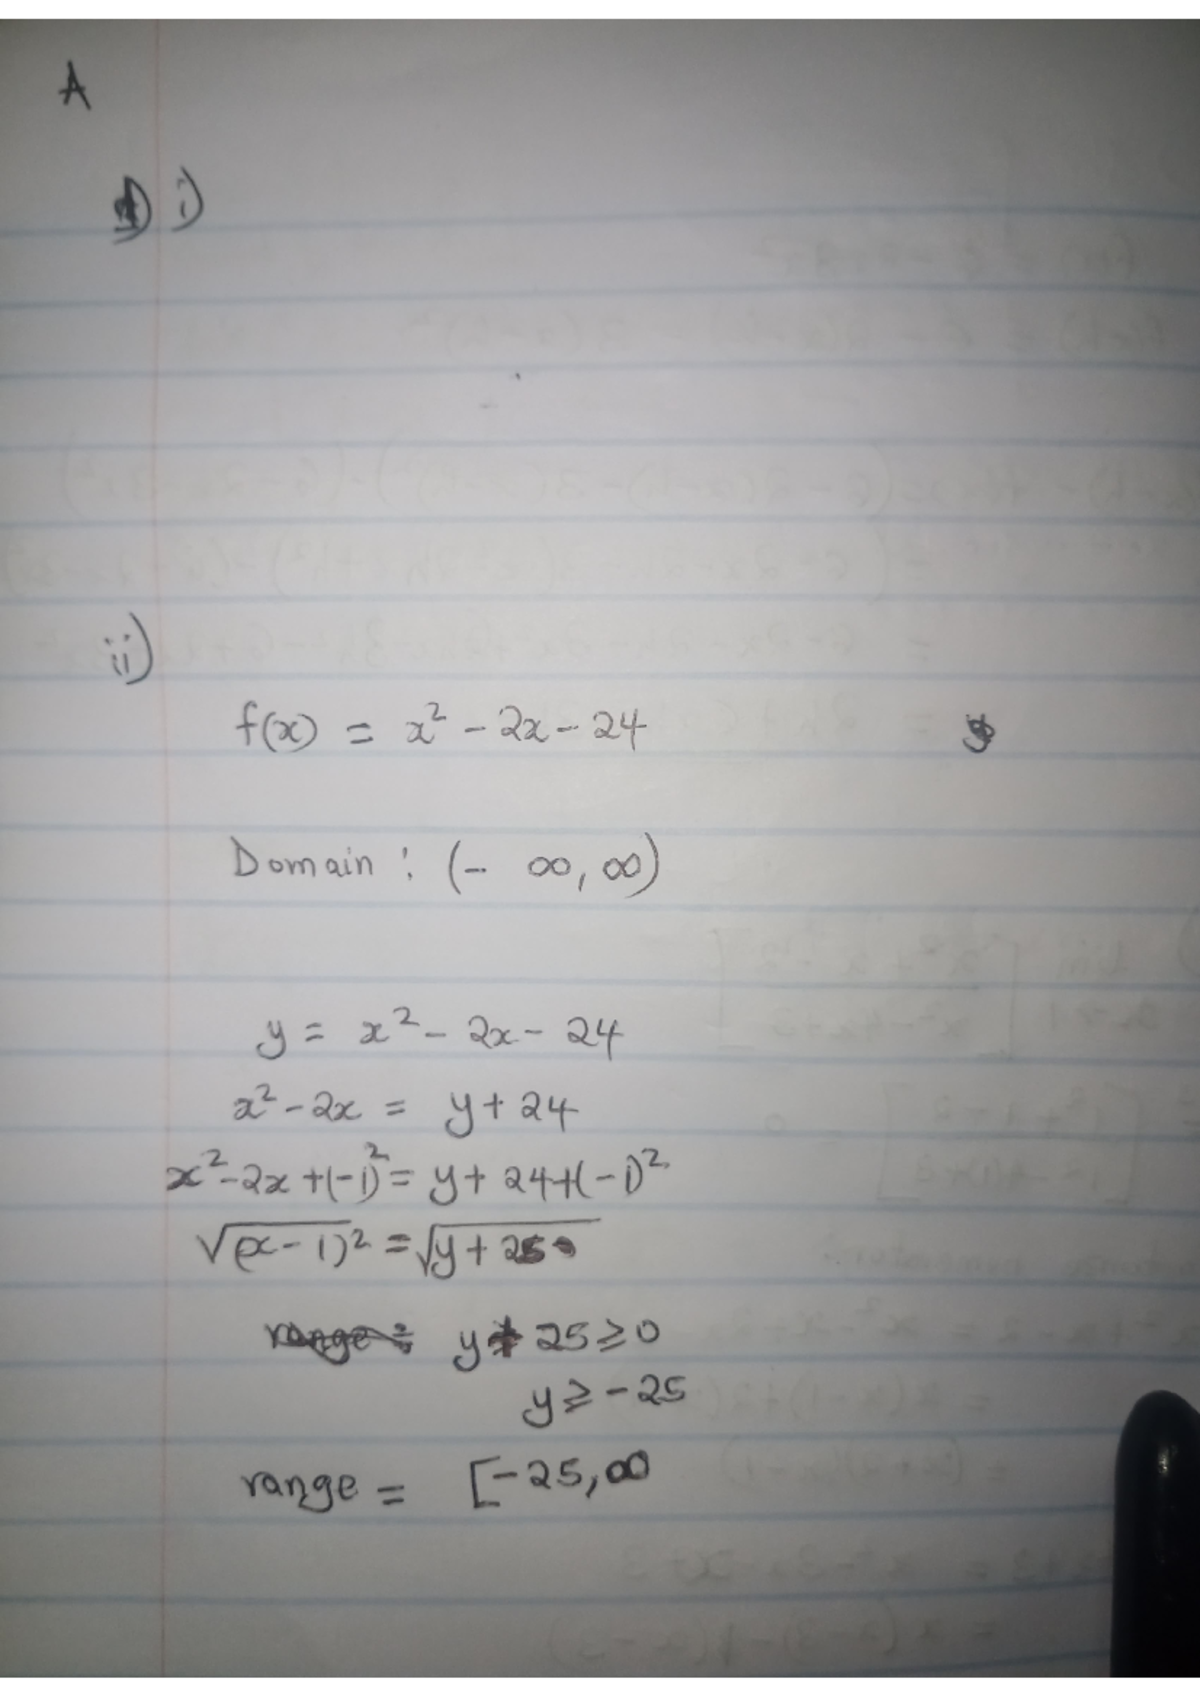 A
i)
ii)
f(x) = x² - 2x - 24
Domain : (- ∞, ∞)
y = x² - 2x - 24
x² - 2x = y + 24
x² - 2x + (-1)² = y + 24 + (-1)²
√(x - 1)² = √y + 25
y + 25 ≥ 0
y ≥ -25
range = [-25, ∞